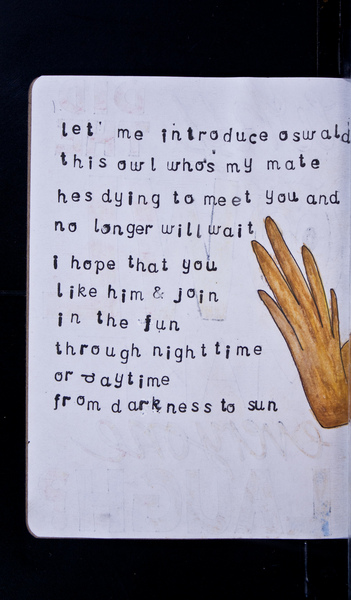 let' me introduce oswald
this owl who's my mate
hes dying to meet you and
no longer will wait
i hope that you
like him & join
in the fun
through nighttime
or daytime
from darkness to sun